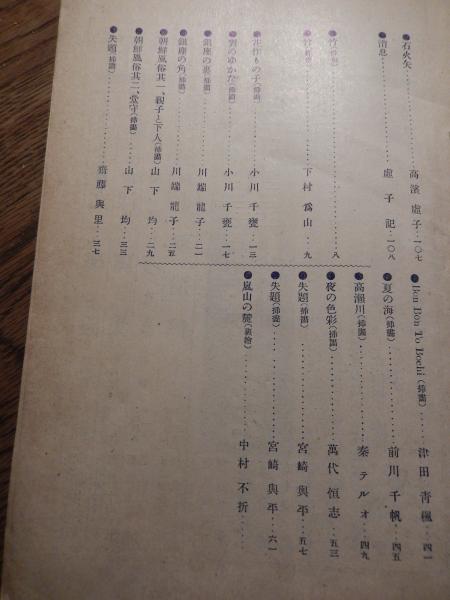 ●石火矢 高濱虛子…一〇七
●消息 虛子記…一〇八
●竹 ………八
●竹 下村爲山…九
●花作りの子(挿畵)…小川千甕…一三
●宵のゆかた(挿畵)…小川千甕…一七
●銀座の裏(挿畵)…川端龍子…二一
●銀座の角(挿畵)…川端龍子…二五
●朝鮮風俗其一、親子と下人(挿畵)山下均…二九
●朝鮮風俗其二、堂守(挿畵)…山下均…三三
●失題(挿畵)………齋藤與里…三七
●Bon Bon To Bochi(挿畵)…津田青楓…四一
●夏の海(挿畵)………前川千帆…四五
●高瀨川(挿畵)………秦テルオ…四九
●夜の色彩(挿畵)………萬代恒志…五三
●失題(挿畵)………宮崎與平…五七
●失題(挿畵)………宮崎與平…六一
●嵐山の麓(裏繪)………中村不折……